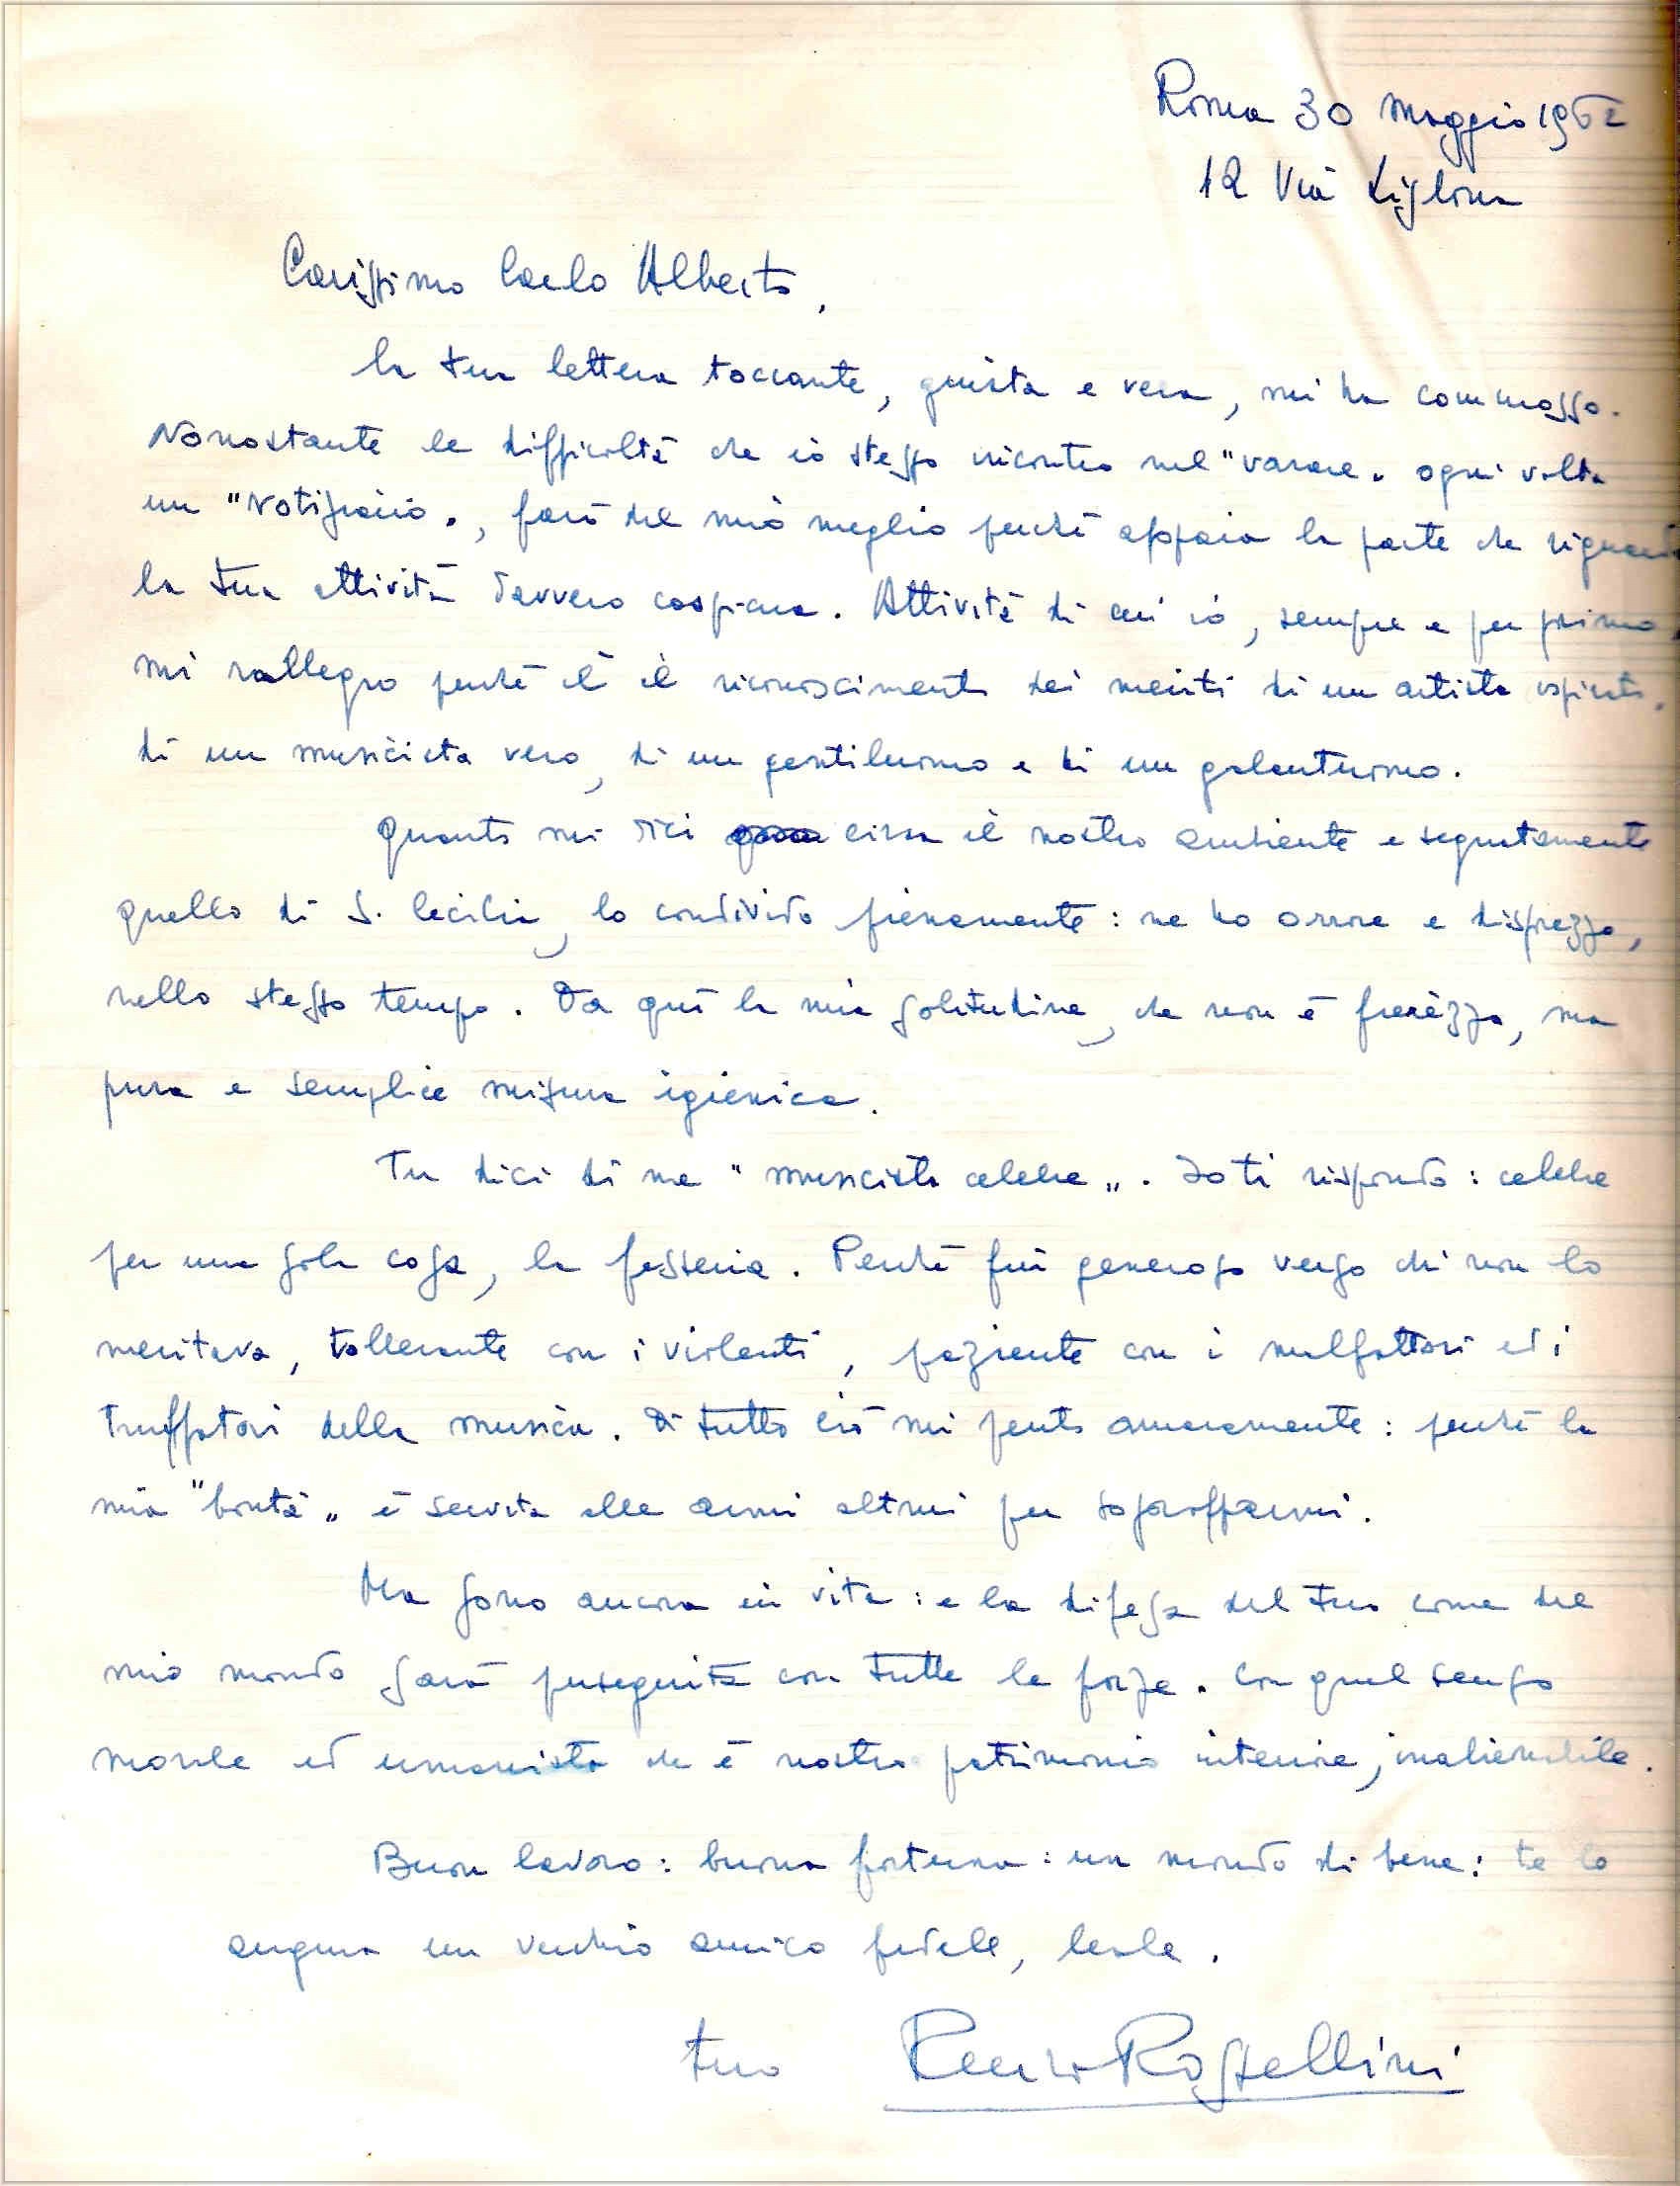 Roma 30 Maggio 1962
12 Via Liglona
Carissimo Carlo Alberto,
la tua lettera toccante, giusta e vera, mi ha commosso.
Nonostante le difficoltà che io stesso incontro nel "varare" ogni volta
un "Notiziario", farò del mio meglio perché appaia la parte che riguarda
la tua attività davvero cospicua. Attività di cui io, sempre e per primo,
mi rallegro perché è il riconoscimento dei meriti di un artista ispirato,
di un musicista vero, di un gentiluomo e di un galantuomo.
Quanto mi dici circa il nostro ambiente e segnatamente
quello di S. Cecilia, lo condivido pienamente: ne ho orrore e disprezzo,
nello stesso tempo. Da qui la mia solitudine, che non è fierezza, ma
pura e semplice misura igienica.
Tu dici di me "musicista celebre". Io ti rispondo: celebre
per una sola cosa, la fesseria. Perché fui generoso verso chi non lo
meritava, tollerante con i violenti, paziente con i malfattori ed i
truffatori della musica. Di tutto ciò mi pento amaramente: perché la
mia "bontà" è servita alle armi altrui per sopraffarmi.
Ma sono ancora in vita: e la difesa del tuo come del
mio mondo sarà perseguita con tutte le forze. Con quel senso
morale ed umanista che è nostro patrimonio interiore, inalienabile.
Buon lavoro: buona fortuna: un mondo di bene: te lo
augura un vecchio amico fedele, leale.
tuo Renzo Rossellini